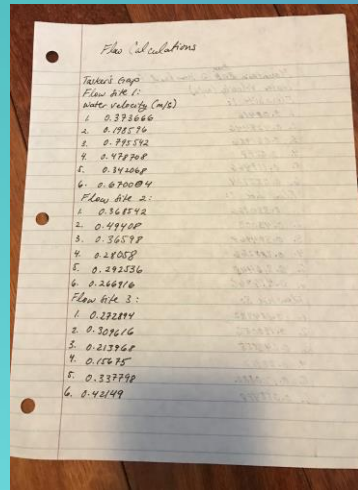 Flow Calculations
Tasker's Gap
Flow Site 1:
Water velocity (m/s)
1. 0.373666
2. 0.198596
3. 0.795542
4. 0.478708
5. 0.342068
6. 0.670004
Flow Site 2:
1. 0.368542
2. 0.49408
3. 0.36598
4. 0.28058
5. 0.292536
6. 0.266916
Flow Site 3:
1. 0.272894
2. 0.309616
3. 0.213968
4. 0.15675
5. 0.337798
6. 0.42149